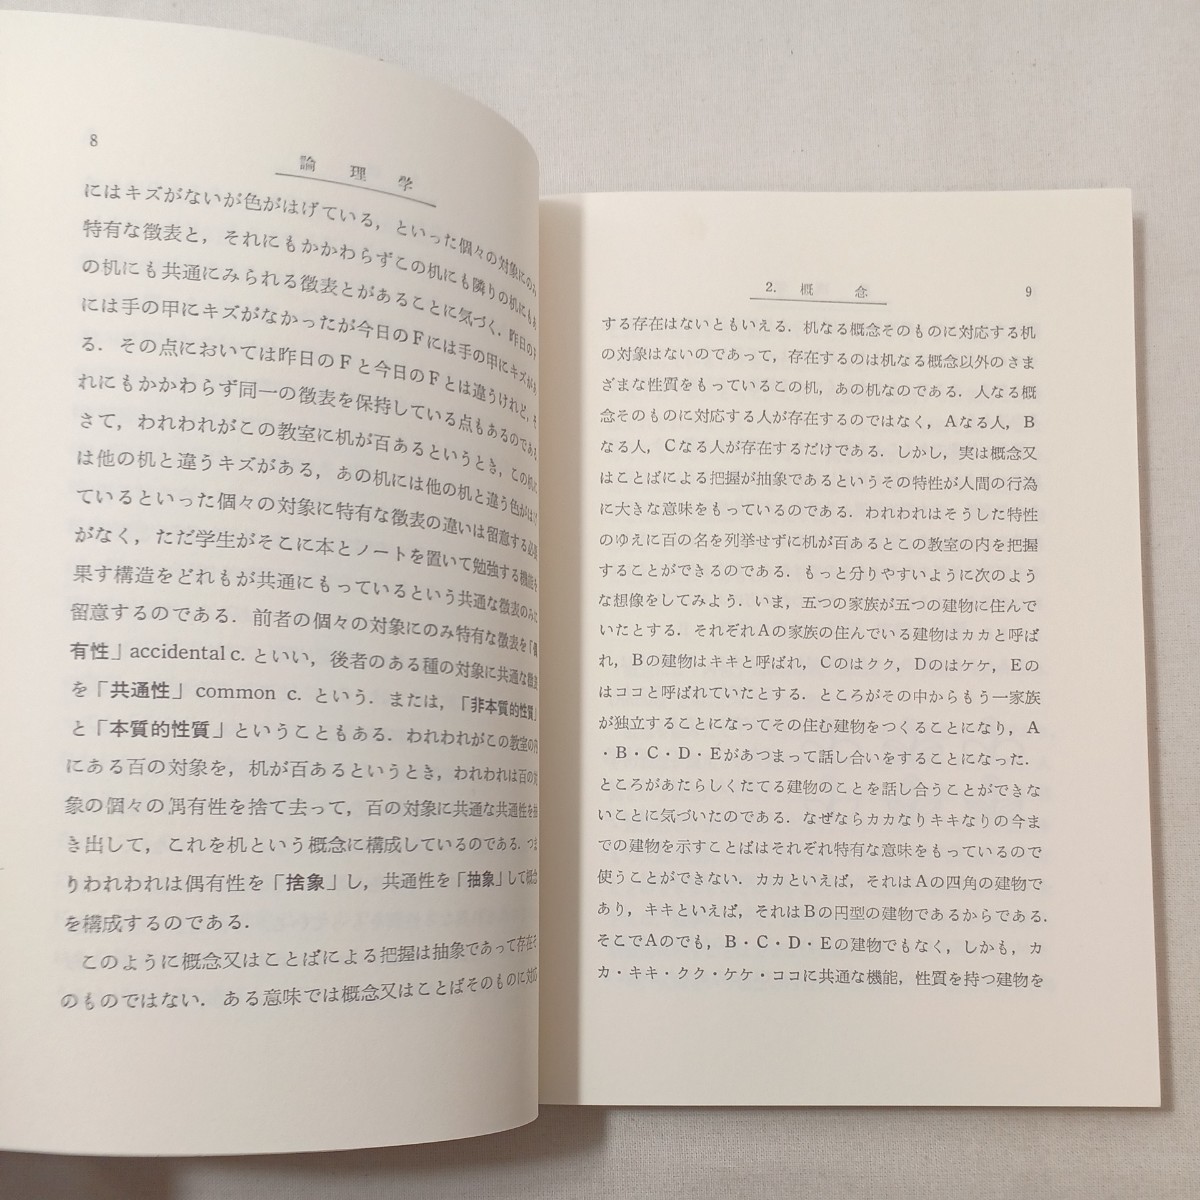 8
論理学
にはキズがないが色がはげている，といった個々の対象にのみ
特有な徴表と，それにもかかわらずこの机にも隣りの机にもあ
の机にも共通にみられる徴表とがあることに気づく．昨日のF
には手の甲にキズがなかったが今日のFには手の甲にキズがあ
る．その点においては昨日のFと今日のFとは違うけれど，そ
れにもかかわらず同一の徴表を保持している点もあるのである
さて，われわれがこの教室に机が百あるというとき，この机に
は他の机と違うキズがある，あの机には他の机と違う色がはげ
ているといった個々の対象に特有な徴表の違いは留意する必要
がなく，ただ学生がそこに本とノートを置いて勉強する機能を
果す構造をどれもが共通にもっているという共通な徴表のみに
留意するのである．前者の個々の対象にのみ特有な徴表を「偶
有性」accidental c. といい，後者のある種の対象に共通な徴表
を「共通性」common c. という．または，「非本質的性質」
と「本質的性質」ということもある．われわれがこの教室の内
にある百の対象を，机が百あるというとき，われわれは百の対
象の個々の偶有性を捨て去って，百の対象に共通な共通性を抽
き出して，これを机という概念に構成しているのである．つま
りわれわれは偶有性を「捨象」し，共通性を「抽象」して概念
を構成するのである．
このように概念又はことばによる把握は抽象であって存在そ
のものではない．ある意味では概念又はことばそのものに対応
2. 概念
9
する存在はないともいえる．机なる概念そのものに対応する机
の対象はないのであって，存在するのは机なる概念以外のさま
ざまな性質をもっているこの机，あの机なのである．人なる概
念そのものに対応する人が存在するのではなく，Aなる人，B
なる人，Cなる人が存在するだけである．しかし，実は概念又
はことばによる把握が抽象であるというその特性が人間の行為
に大きな意味をもっているのである．われわれはそうした特性
のゆえに百の名を列挙せずに机が百あるとこの教室の内を把握
することができるのである．もっと分りやすいように次のよう
な想像をしてみよう．いま，五つの家族が五つの建物に住んで
いたとする．それぞれAの家族の住んでいる建物はカカと呼ば
れ，Bの建物はキキと呼ばれ，Cのはクク，Dのはケケ，Eの
はココと呼ばれていたとする．ところがその中からもう一家族
が独立することになってその住む建物をつくることになり，A
・B・C・D・Eがあつまって話し合いをすることになった．
ところがあたらしくたてる建物のことを話し合うことができな
いことに気づいたのである．なぜならカカなりキキなりの今ま
での建物を示すことばはそれぞれ特有な意味をもっているので
使うことができない．カカといえば，それはAの四角の建物で
あり，キキといえば，それはBの円型の建物であるからである．
そこでAのでも，B・C・D・Eの建物でもなく，しかも，カ
カ・キキ・クク・ケケ・ココに共通な機能，性質を持つ建物を